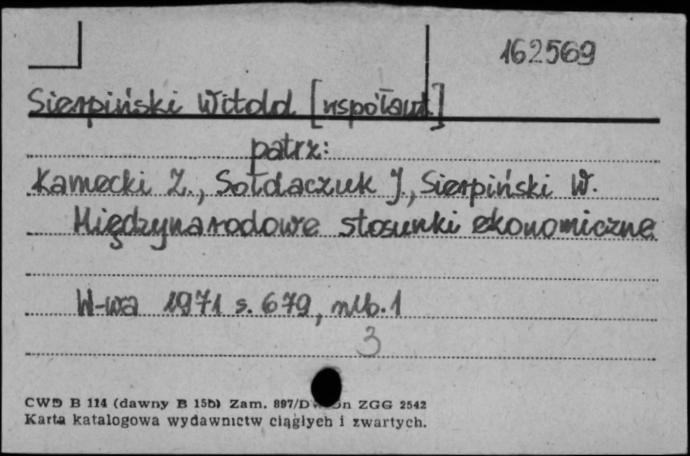 162569
Sierpiński Witold [współaut.]
patrz:
Kamecki Z., Sołdaczuk J., Sierpiński W.
Międzynarodowe stosunki ekonomiczne
W-wa 1971 s. 679, nlb. 1
3
CWD B 114 (dawny B 15b) Zam. 897/D ZGG 2542
Karta katalogowa wydawnictw ciągłych i zwartych.